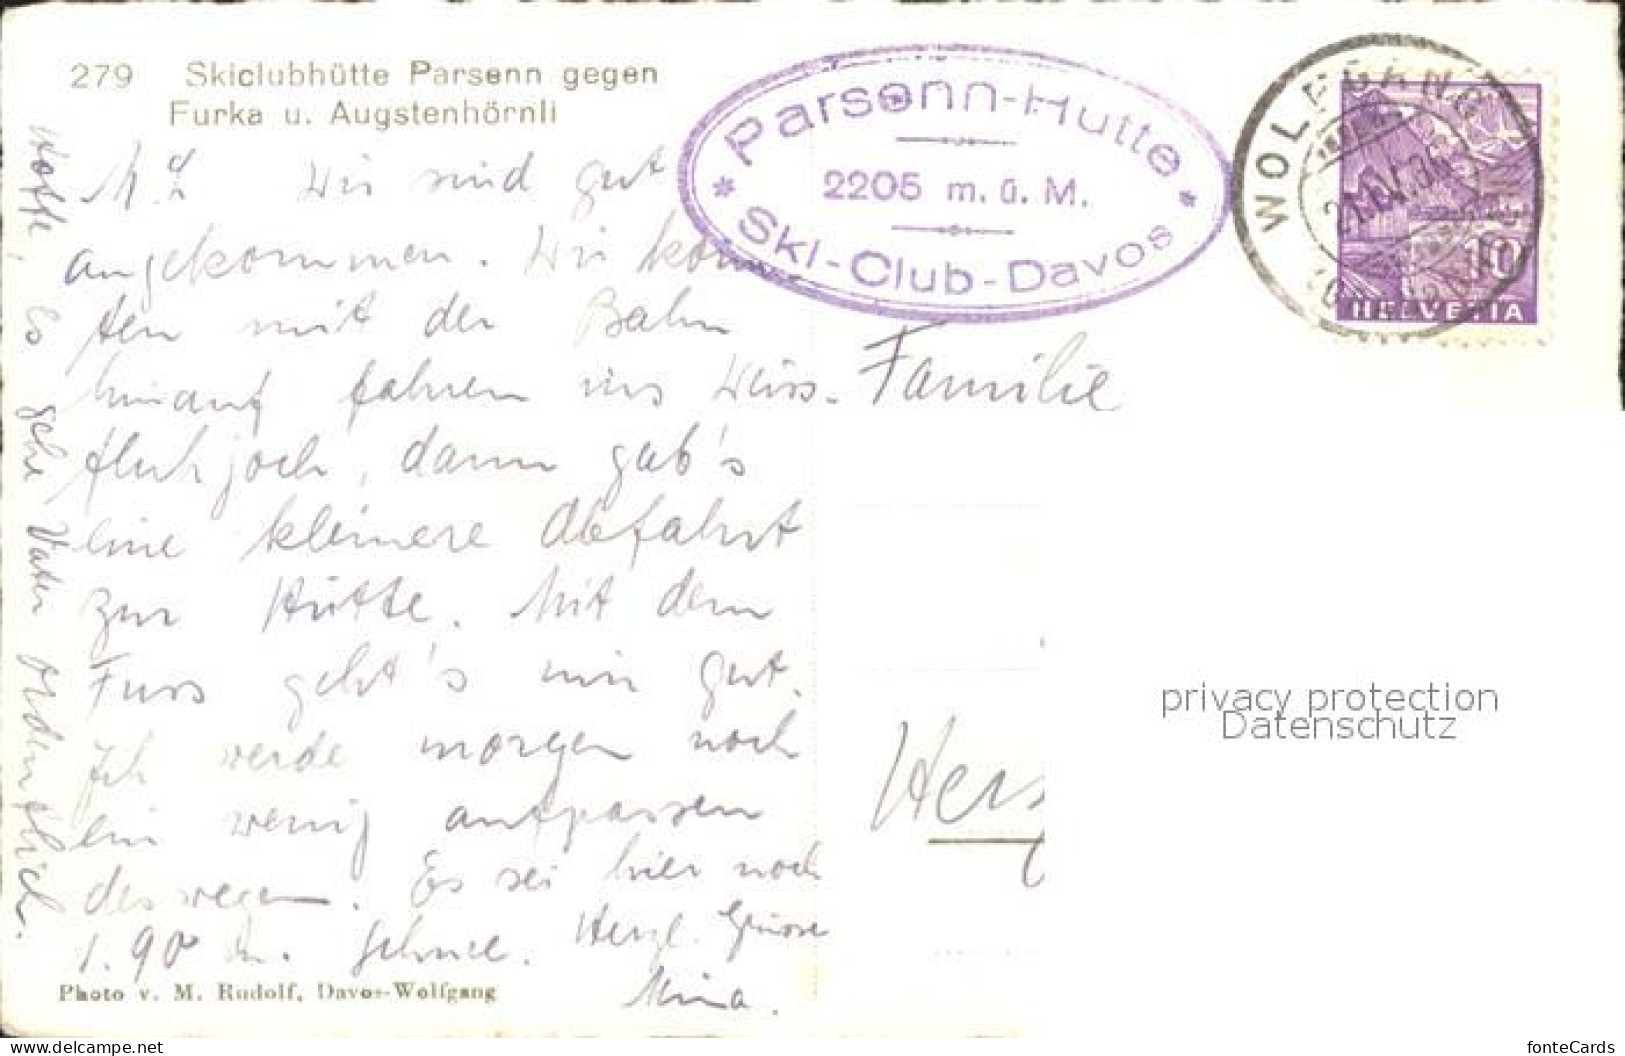 279 Skiclubhütte Parsenn gegen
Furka u. Augstenhörnli
Parsenn-Hütte
2205 m. ü. M.
Ski-Club-Davos
WOLFGANG
HELVETIA
10
M. L. Wir sind gut
angekommen. Wir konn
ten mit der Bahn
hinauf fahren ins Weiss-
fluhjoch, dann gab's
eine kleinere Abfahrt
zur Hütte. Mit dem
Fuss geht's mir gut.
Ich werde morgen noch
ein wenig aufpassen
deswegen. Es sei hier noch
1.90 m. Schnee. Herzl. Grüsse
Mina.
Hoffe, es gehe Vater ordentlich.
Familie
Photo v. M. Rudolf, Davos-Wolfgang
privacy protection
Datenschutz
www.delcampe.net
fonteCards